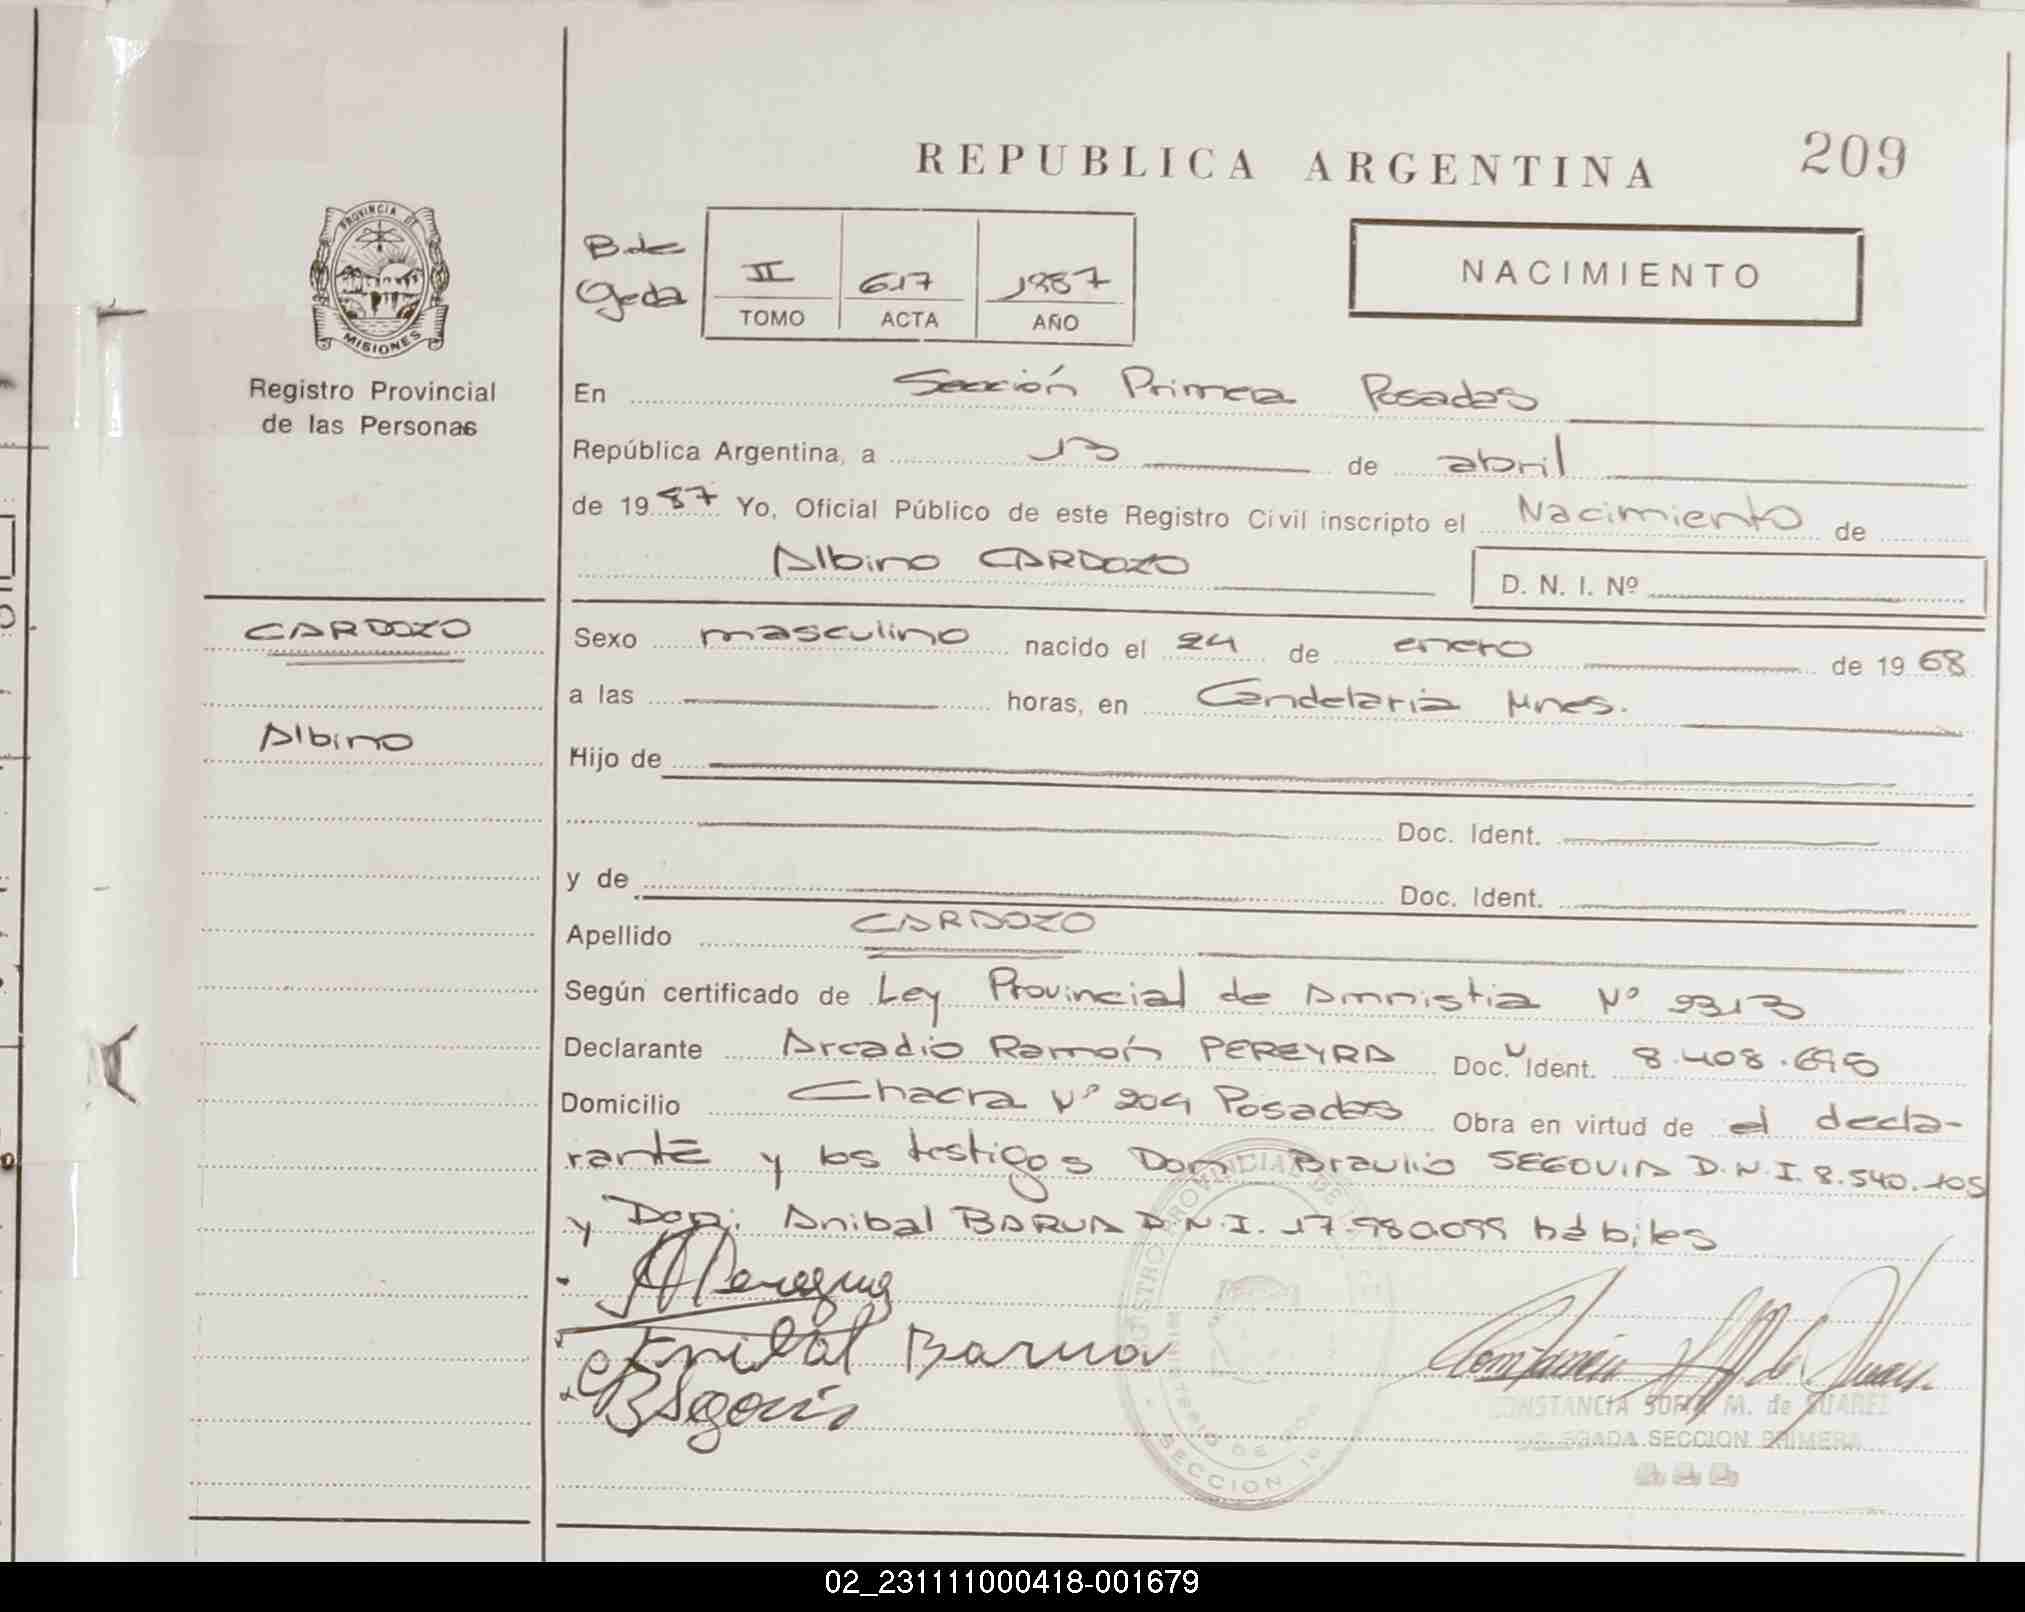 REPUBLICA ARGENTINA
209
PROVINCIA DE
MISIONES
Registro Provincial
de las Personas
B. de
Ojeda
II 617 1987
TOMO ACTA AÑO
NACIMIENTO
En Sección Primera Posadas
República Argentina, a 13 de abril
de 1987 Yo, Oficial Público de este Registro Civil inscripto el Nacimiento de
Albino CARDOZO
D. N. I. Nº
CARDOZO
Albino
Sexo masculino nacido el 24 de enero de 1968
a las horas, en Candelaria Mnes.
Hijo de
Doc. Ident.
y de Doc. Ident.
Apellido CARDOZO
Según certificado de Ley Provincial de Amnistia Nº 2313
Declarante Arcadio Ramón PEREYRA Doc. Ident. 8.408.698
Domicilio Chacra Nº 204 Posadas Obra en virtud de el decla-
rante y los testigos Don: Braulio SEGOVIA D.N.I. 8.540.105
y Don: Anibal BARUA D.N.I. 17.980.099 hábiles
Anibal Barua
BSegovia
CONSTANCIA SOFIA M. de SUAREZ
DELEGADA SECCION PRIMERA
REGISTRO PROVINCIAL DE
MINISTERIO DE
SECCION 1º
02_231111000418-001679